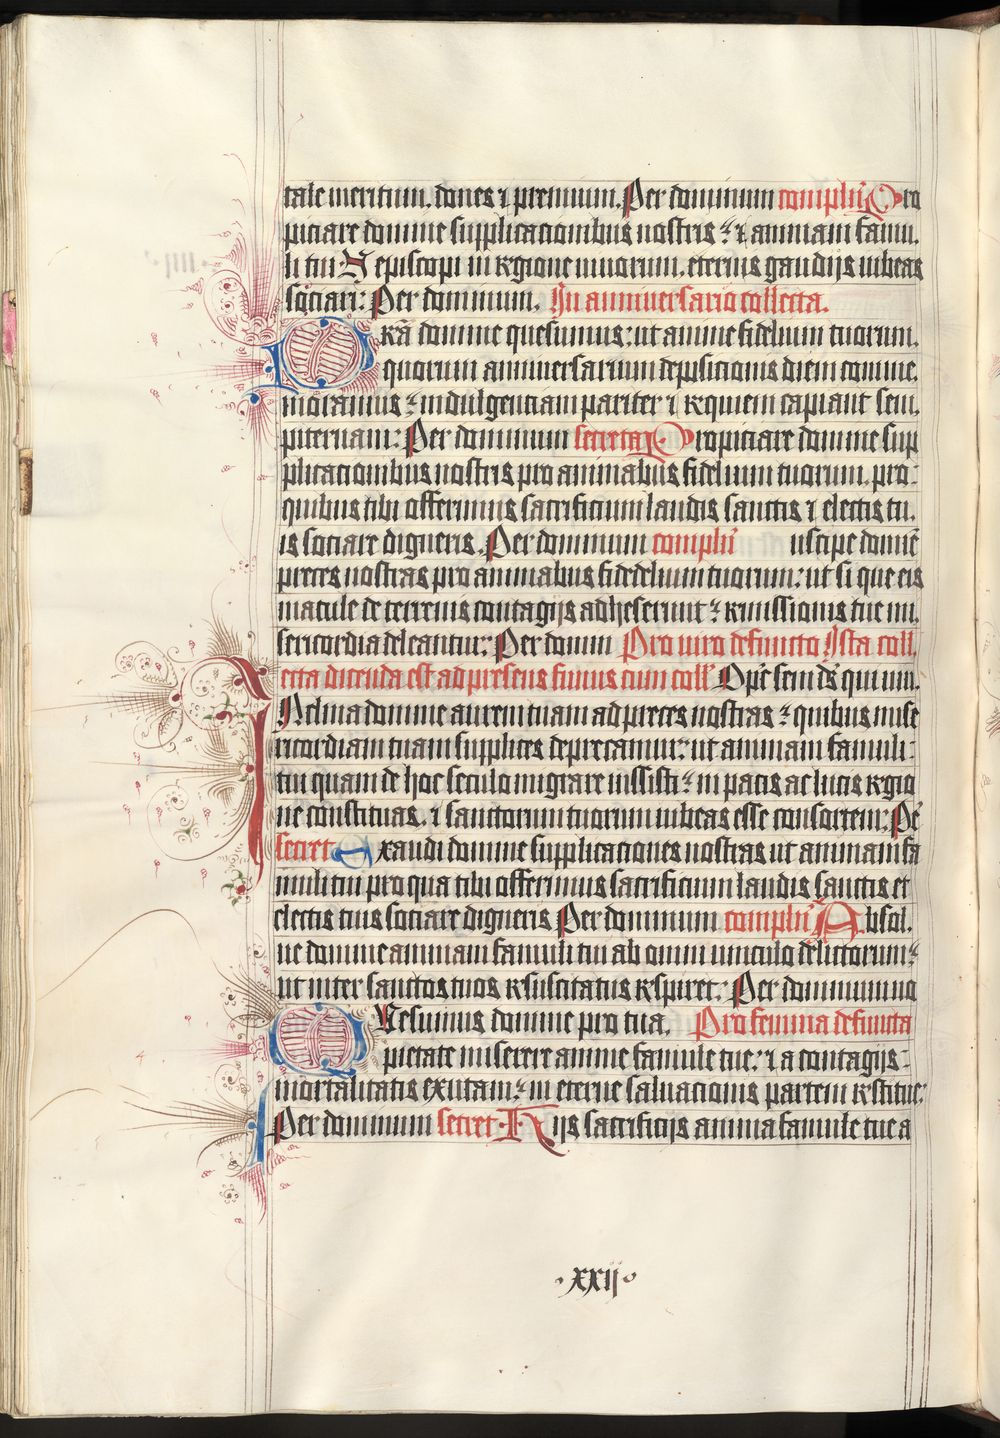 tale meritum. dones ⁊ premium. Per dominum complēn̄ Pro
piciare domine supplicacionibus nostris ⁊ animam famu.
li tui N episcopi in regione uiuorum. eternis gaudijs iubeas
sociari: Per dominum. In anniuersario collecta.
Presta domine quesumus: ut anime fidelium tuorum.
quorum anniuersarium deposicionis diem comme.
moramus: indulgenciam pariter ⁊ requiem capiant sem.
piternam: Per dominum secreta Propiciare domine sup
plicacionibus nostris pro animabus fidelium tuorum. pro-
quibus tibi offerimus sacrificium laudis sanctis ⁊ electis tu.
is sociare digneris. Per dominum complēn̄ uscipe domīe
preces nostras pro animabus fidedelium tuorum: ut si que eis
macule de terrenis contagijs adheserunt: remissionis tue mi.
sericordia deleantur: Per domin Pro uiro defuncto Ista coll.
ecta dicenda est ad presens funus cum coll' Op̄c sem d̄s qui um.
Inclina domine aurem tuam ad preces nostras: quibus mise
ricordiam tuam supplices deprecamur: ut animam famuli:
tui quam de hoc seculo migrare iussisti: in pacis ac lucis regio
ne constituas. ⁊ sanctorum tuorum iubeas esse consortem: P̄e
secret Exaudi domine supplicaciones nostras ut animam fa
muli tui pro qua tibi offerimus sacrificium laudis sanctis et
electis tuis sociare digneris Per dominum complēn̄ Absol.
ue domine animam famuli tui ab omni uinculo delictorum:
ut inter sanctos tuos resuscitatus respiret: Per dominum no
Quesumus domine pro tua. Pro femina defuncta
pietate miserere anime famule tue: ⁊ a contagijs-
mortalitatis exutam: in eterne saluacionis partem restitue:
Per dominum secret Hijs sacrificijs anima famule tue a
·xxij·